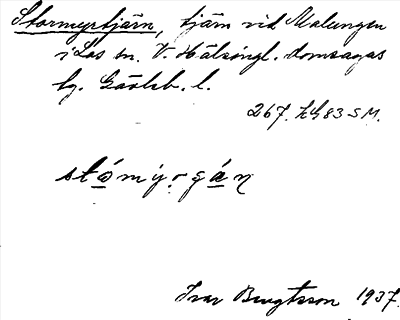 Stormyrtjärn, tjärn vid Malungen
i Los sn. V. Hälsingl. domsagas
tg. Gävleb. l.
267. HG 83 S M.
stómy-gán
Ivar Bengtsson 1937.